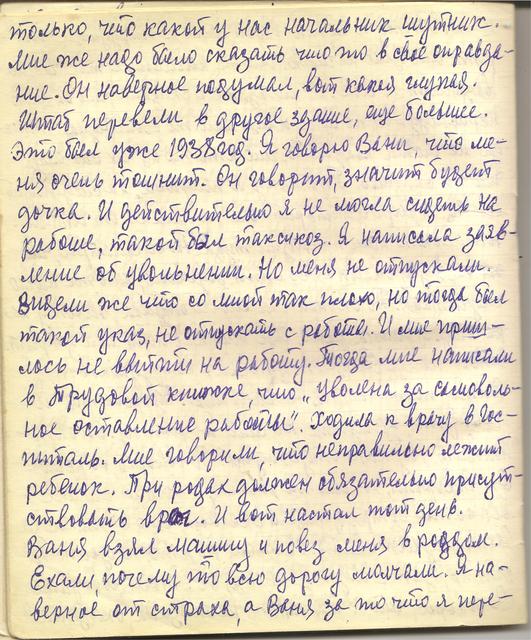 только, что какой у нас начальник шутник.
Мне же надо было сказать что то в свое оправда-
ние. Он наверное подумал, вот какая глупая.
Штат перевели в другое здание, еще большее.
Это был уже 1938 год. Я говорю Вани, что ме-
ня очень тошнит. Он говорит, значит будет
дочка. И действительно я не могла сидеть на
работе, такой был таксикоз. Я написала заяв-
ление об увольнении. Но меня не отпускали.
Видели же что со мной так плохо, но тогда был
такой указ, не отпускать с работы. И мне приш-
лось не выйти на работу. Тогда мне написали
в Трудовой книжке, что „уволена за самоволь-
ное оставление работы". Ходила к врачу в Гос-
питаль. Мне говорили, что неправильно лежит
ребенок. При родах должен обязательно присут-
ствовать врач. И вот настал тот день.
Ваня взял машину и повез меня в роддом.
Ехали, почему то всю дорогу молчали. Я на-
верное от страха, а Ваня за то что я пере-